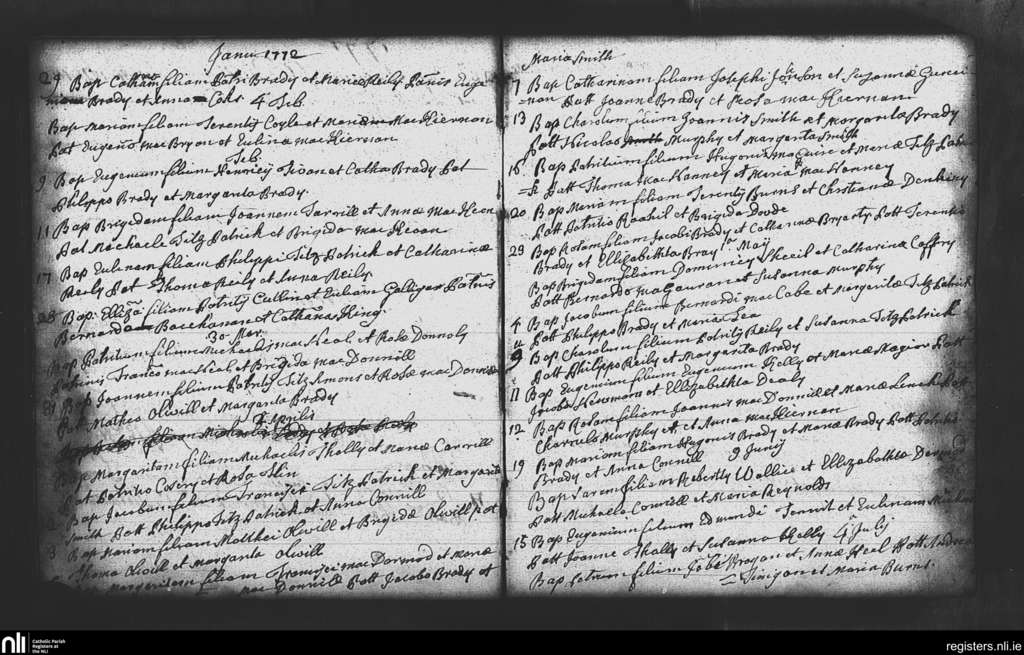 Janu 1772
29 Bap Cathm filiam Patri Brady et Maria Reily Patnis Euge
Brady et Anna Coke 4 Feb.
Bap Mariam filiam Terentij Coyle et Mariæ MacKiernan
Pat Eugeno mac Bryan et Eulina mac Kiernan
Feb.
9 Bap Eugenium filium Henricij et Catha Brady Pat
Philippo Brady et Margarita Brady.
11 Bap Brigidam filiam Joannem Farrill et Annæ Mac Keon
Pat Michaele Fitz Patrick et Brigida mac Keoan
Bap Eulinam filiam Philippi Fitz Patrick et Catharinæ
17 Reily Pat Thoma Reily et Anna Reily
Bap: Elliza filiam Patritij Cullin et Euliam Galligan Patnis
28 Bernardo Bacchanan et Catharina King.
30 Mar
Bap Patritium filium Michaelis mac Keal et Rosæ Donnoly
Patnis Franco mac Keal et Brigida mac Donnill
Bap Joannem filium Patritij Fitz Simons et Rosæ mac Donnill
21 Pat Matheo Olwill et Margarita Brady
Aprilis
Bap Margaritam filiam Michaelis Tholly et Mariæ Carrill
Pat Patritio Cosery et Rosa Flin
Bap Jacobum filium Francijei Fitz Patrick et Margarita
Smith Patt Philippo Fitz Patrick et Anna Connill
3 Bap Mariam filiam Matthei Olwill et Brigidæ Olwill Pat
Thoma Olwill et Margarita Olwill
Margaritam filiam Francijei mac Dormod et Mariæ
mac Donnill Patt Jacobo Brady et
Maria Smith
7 Bap Catharinam filiam Josephi Jonson et Suzannæ
Patt Joanne Brady et Rosa mac Kiernan
13 Bap Charolum filium Joannis Smith et Margarita Brady
Patt Nicolao Murphy et Margarita Smith
15 Bap Patritium filium Hugonis maguire et Mariæ Fitz Patr
Patt Thoma Mac Kanney et Maria mac Kanney
20 Bap Mariam filiam Terentij Burns et Christianæ Denheny
Patt Patritio Raahil et Brigida Dowde
29 Bap Rosam filiam Jacobi Brady et Catharinæ Bryanty Patt Terentio
Brady et Ellizabethta Bray 1st May
Bap Brigidam filiam Dominicij Sheeil et Catharina Caffry
Patt Bernardo magauran et Susanna Murphy
4 Bap Jacobum filium Bernardi mac Cabe et Margerita Fitz Patrick
Patt Philippo Brady et Maria Lea
9 Bap Charolum filium Patritij Reily et Susanna Fitz Patrick
Patt Philippo Reily et Margarita Brady
11 Bap Eugenium filium Eugenium Kelly et Mariæ Magion Patt
Jacobo Newman et Ellizabethta Dealy
12 Bap Rosam filiam Joannis mac Donnill et Mariæ Linch Patt
Charrolo Murphy et Anna mac Kiernan
Bap Mariam filiam Hugonis Brady et Mariæ Brady Patt Patritio
19 Brady et Anna Connill 9 Junij
Bap Saram filiam Robertij Wallice et Ellizabethta Dermod
Patt Michaele Connill et Maria Reynolds
15 Bap Eugenium filium Edmundi Tennit et Eulinam
Patt Joanne Tholly et Susanna Kelly 4 July
Bap Patrum filium Jobi Brogan et Annæ Keel Patt Andrea
Finigan et Maria Burns.
nli
Catholic Parish
Registers at
the NLI
registers.nli.ie